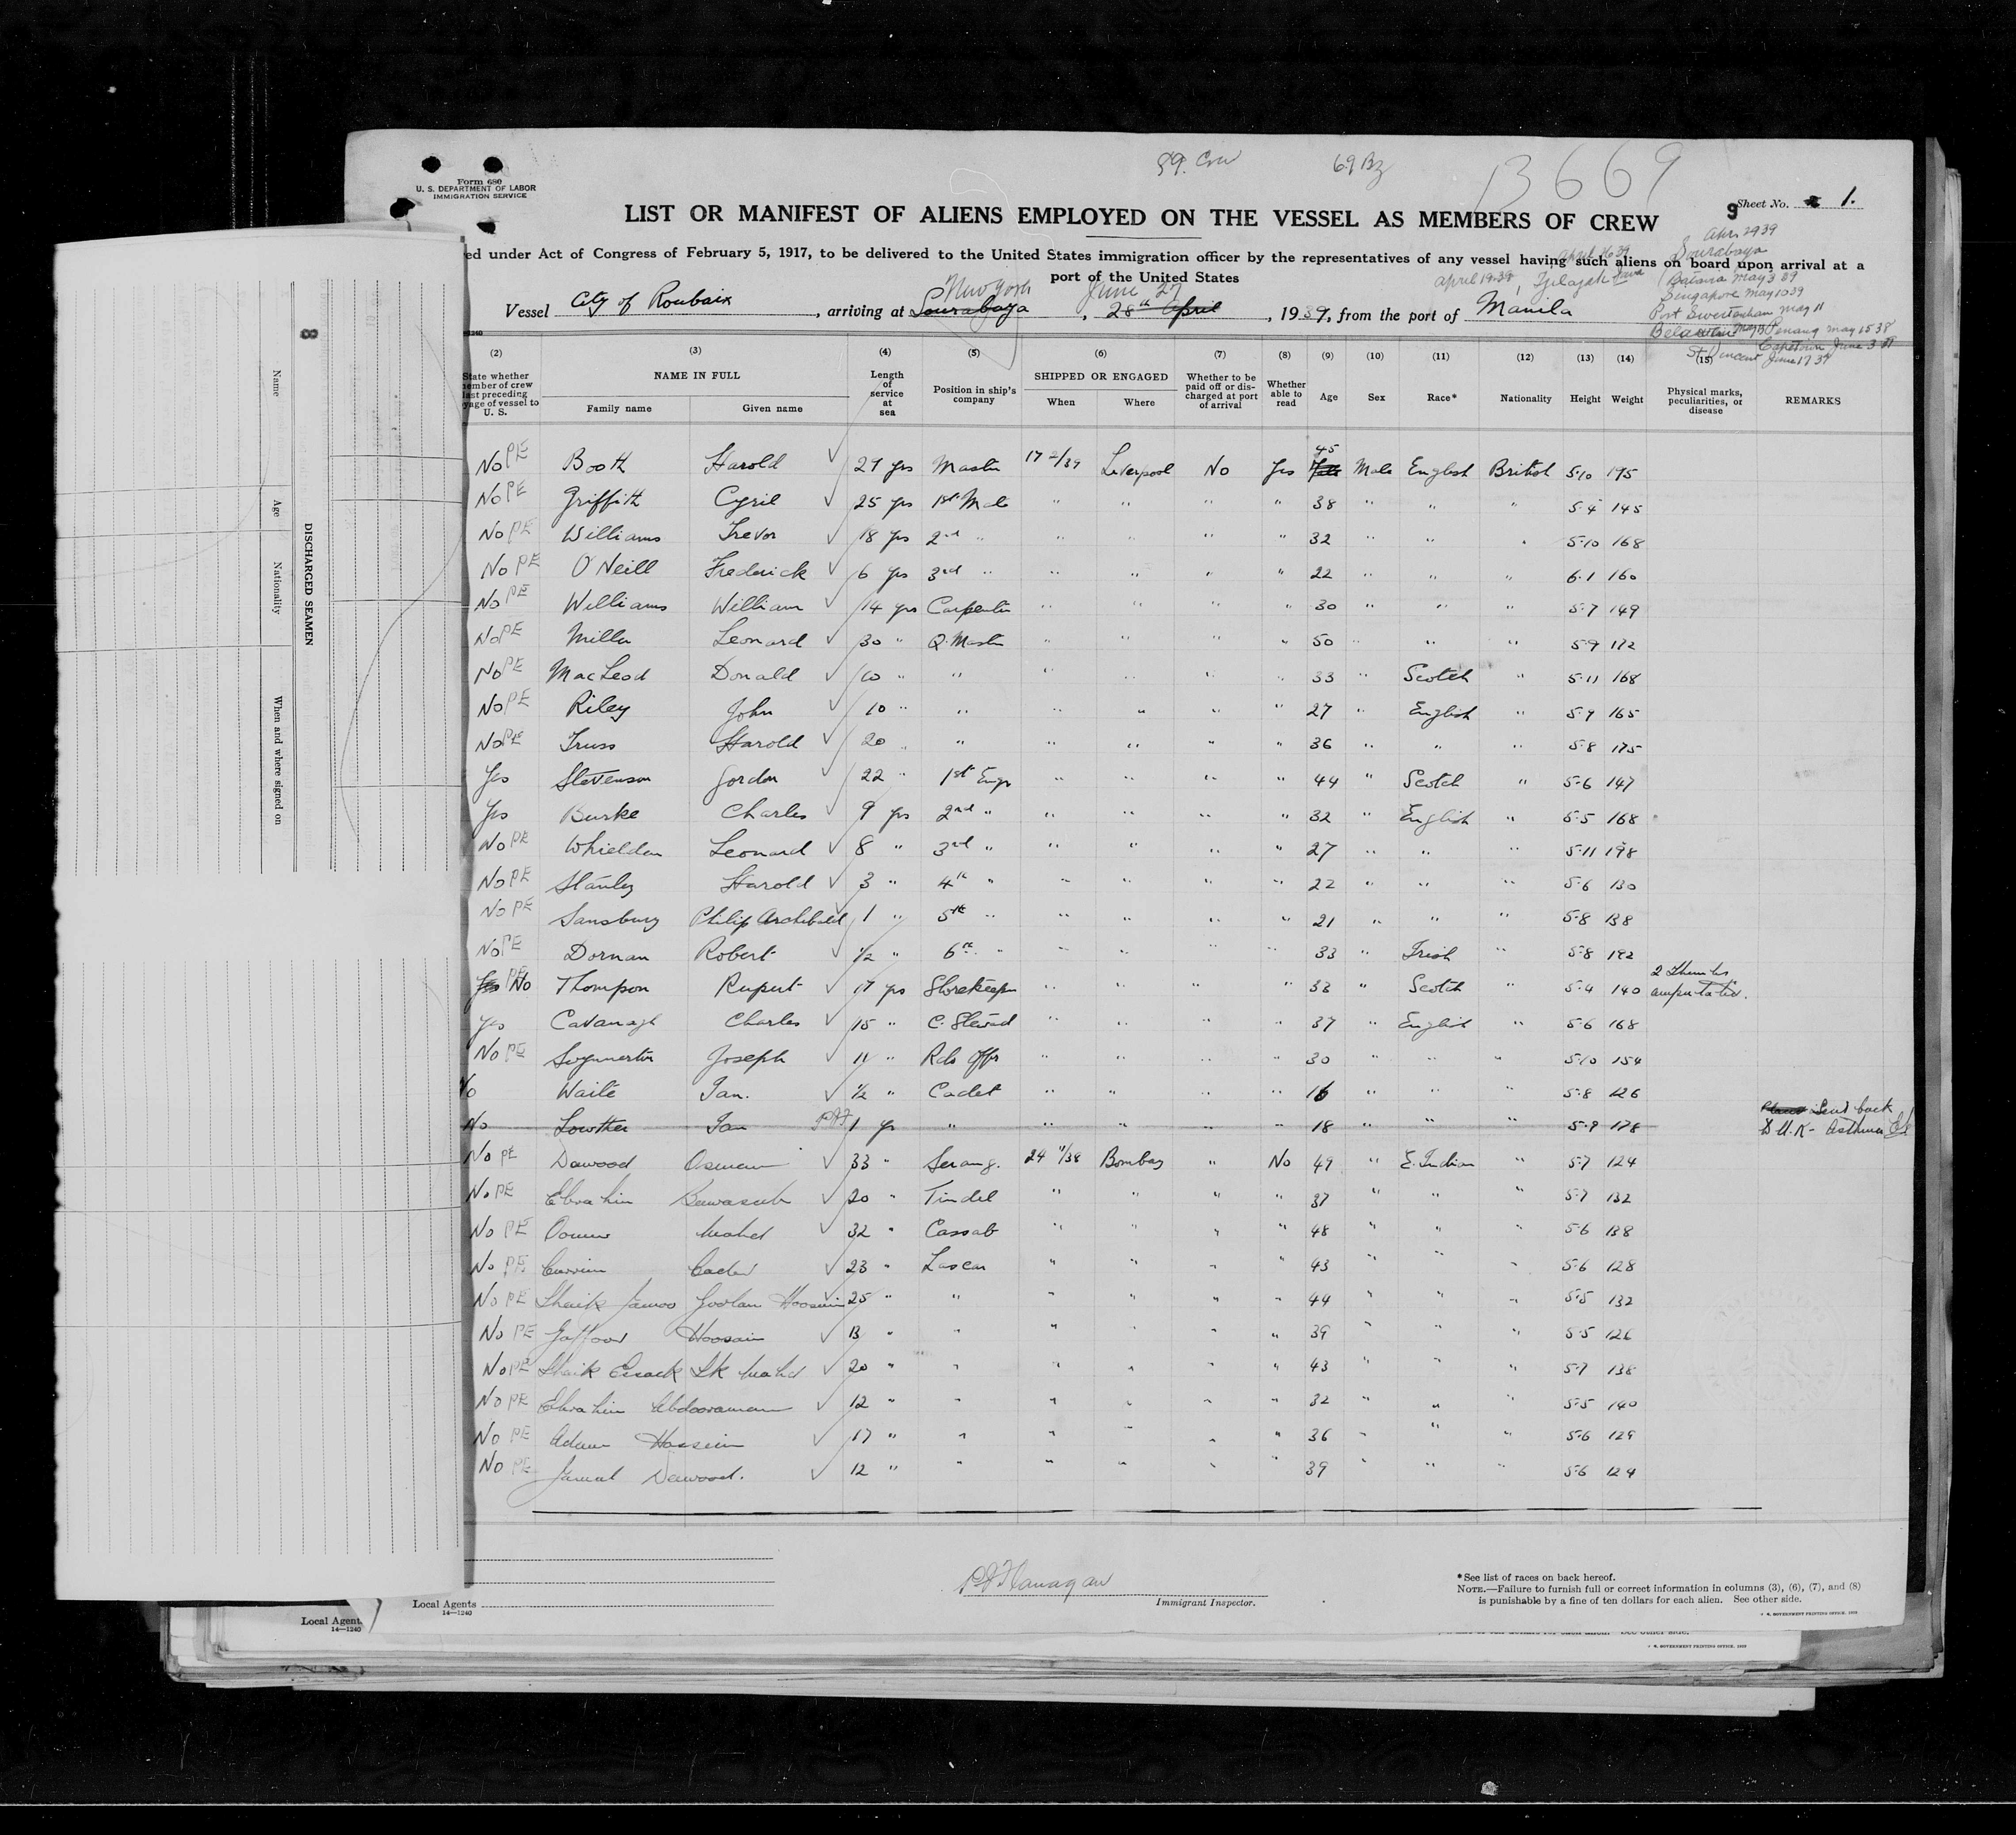 89. Crew 69 Bz 13669
Form 680
U. S. DEPARTMENT OF LABOR
IMMIGRATION SERVICE
9 Sheet No. 1.
LIST OR MANIFEST OF ALIENS EMPLOYED ON THE VESSEL AS MEMBERS OF CREW
ed under Act of Congress of February 5, 1917, to be delivered to the United States immigration officer by the representatives of any vessel having such aliens on board upon arrival at a
port of the United States
Sourabaya
April 19-39, Tjilajah Java
Batavia May 3 39
Singapore May 10 39
Port Swettenham May 11
Belawan Penang May 15 38
Capetown June 3 39
St Vincent June 17 39
New York June 27
Vessel City of Roubaix, arriving at Sourabaya, 28th April, 1939, from the port of Manila
(2) (3) (4) (5) (6) (7) (8) (9) (10) (11) (12) (13) (14) (15)
State whether member of crew last preceding voyage of vessel to U. S. NAME IN FULL Family name Given name Length of service at sea Position in ship's company SHIPPED OR ENGAGED When Where Whether to be paid off or discharged at port of arrival Whether able to read Age Sex Race* Nationality Height Weight Physical marks, peculiarities, or disease REMARKS
No PE Booth Harold 29 yrs Master 17 2/39 Liverpool No Yes 45 Male English British 5-10 195
No PE Griffith Cyril 25 yrs 1st Mate " " " " 38 " " " 5-4 145
No PE Williams Trevor 18 yrs 2nd " " " " " 32 " " " 5-10 168
No PE O'Neill Frederick 6 yrs 3rd " " " " " 22 " " " 6-1 160
No PE Williams William 14 yrs Carpenter " " " " 30 " " " 5-7 149
No PE Miller Leonard 30 " Q. Master " " " " 50 " " " 5-9 172
No PE MacLeod Donald 10 " " " " " " 33 " Scotch " 5-11 168
No PE Riley John 10 " " " " " " 27 " English " 5-9 165
No PE Truss Harold 20 " " " " " " 36 " " " 5-8 175
Yes Stevenson Gordon 22 " 1st Engr " " " " 44 " Scotch " 5-6 147
Yes Burke Charles 9 yrs 2nd " " " " " 32 " English " 5-5 168
No PE Whieldon Leonard 8 " 3rd " " " " " 27 " " " 5-11 198
No PE Stanley Harold 3 " 4th " " " " " 22 " " " 5-6 130
No PE Sansbury Philip Archibald 1 " 5th " " " " " 21 " " " 5-8 138
No PE Dornan Robert 1/2 " 6th " " " " " 33 " Irish " 5-8 192
Yes PE No Thompson Rupert 17 yrs Storekeeper " " " " 33 " Scotch " 5-4 140 2 Thumbs amputated.
Yes Cavanagh Charles 15 " C. Steward " " " " 37 " English " 5-6 168
No PE Swynnerton Joseph 11 " Rdo Offr " " " " 30 " " " 5-10 154
No Waite Ian. 1/2 " Cadet " " " " 16 " " " 5-8 126
No Lowther Ian 1 yr " " " " " 18 " " " 5-9 178 Sent back to U.K- Asthma
No PE Dawood Osman 33 " Serang. 24 11/38 Bombay " No 49 " E. Indian " 5-7 124
No PE Ebrahim Bawasaib 20 " Tindel " " " " 37 " " " 5-7 132
No PE Oomer Mahd 32 " Cassab " " " " 48 " " " 5-6 138
No PE Currim Cader 23 " Lascar " " " " 43 " " " 5-6 128
No PE Shaik Jamoo Goolam Hoosein 25 " " " " " " 44 " " " 5-5 132
No PE Gaffoor Hoosain 13 " " " " " " 39 " " " 5-5 126
No PE Shaik Essack Sk Mahd 20 " " " " " " 43 " " " 5-7 138
No PE Ebrahim Abdooraman 12 " " " " " " 32 " " " 5-5 140
No PE Adam Hossein 17 " " " " " " 36 " " " 5-6 129
No PE Jamal Dawood. 12 " " " " " " 39 " " " 5-6 124
PJ Flanagan
Immigrant Inspector.
*See list of races on back hereof.
NOTE.—Failure to furnish full or correct information in columns (3), (6), (7), and (8)
is punishable by a fine of ten dollars for each alien. See other side.
Local Agents
14—1240
Local Agent
14—1240
8
DISCHARGED SEAMEN
Name
Age
Nationality
When and where signed on